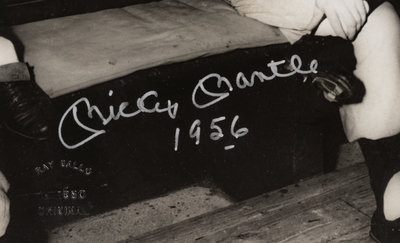 Mickey Mantle
1956
RAY GALLO